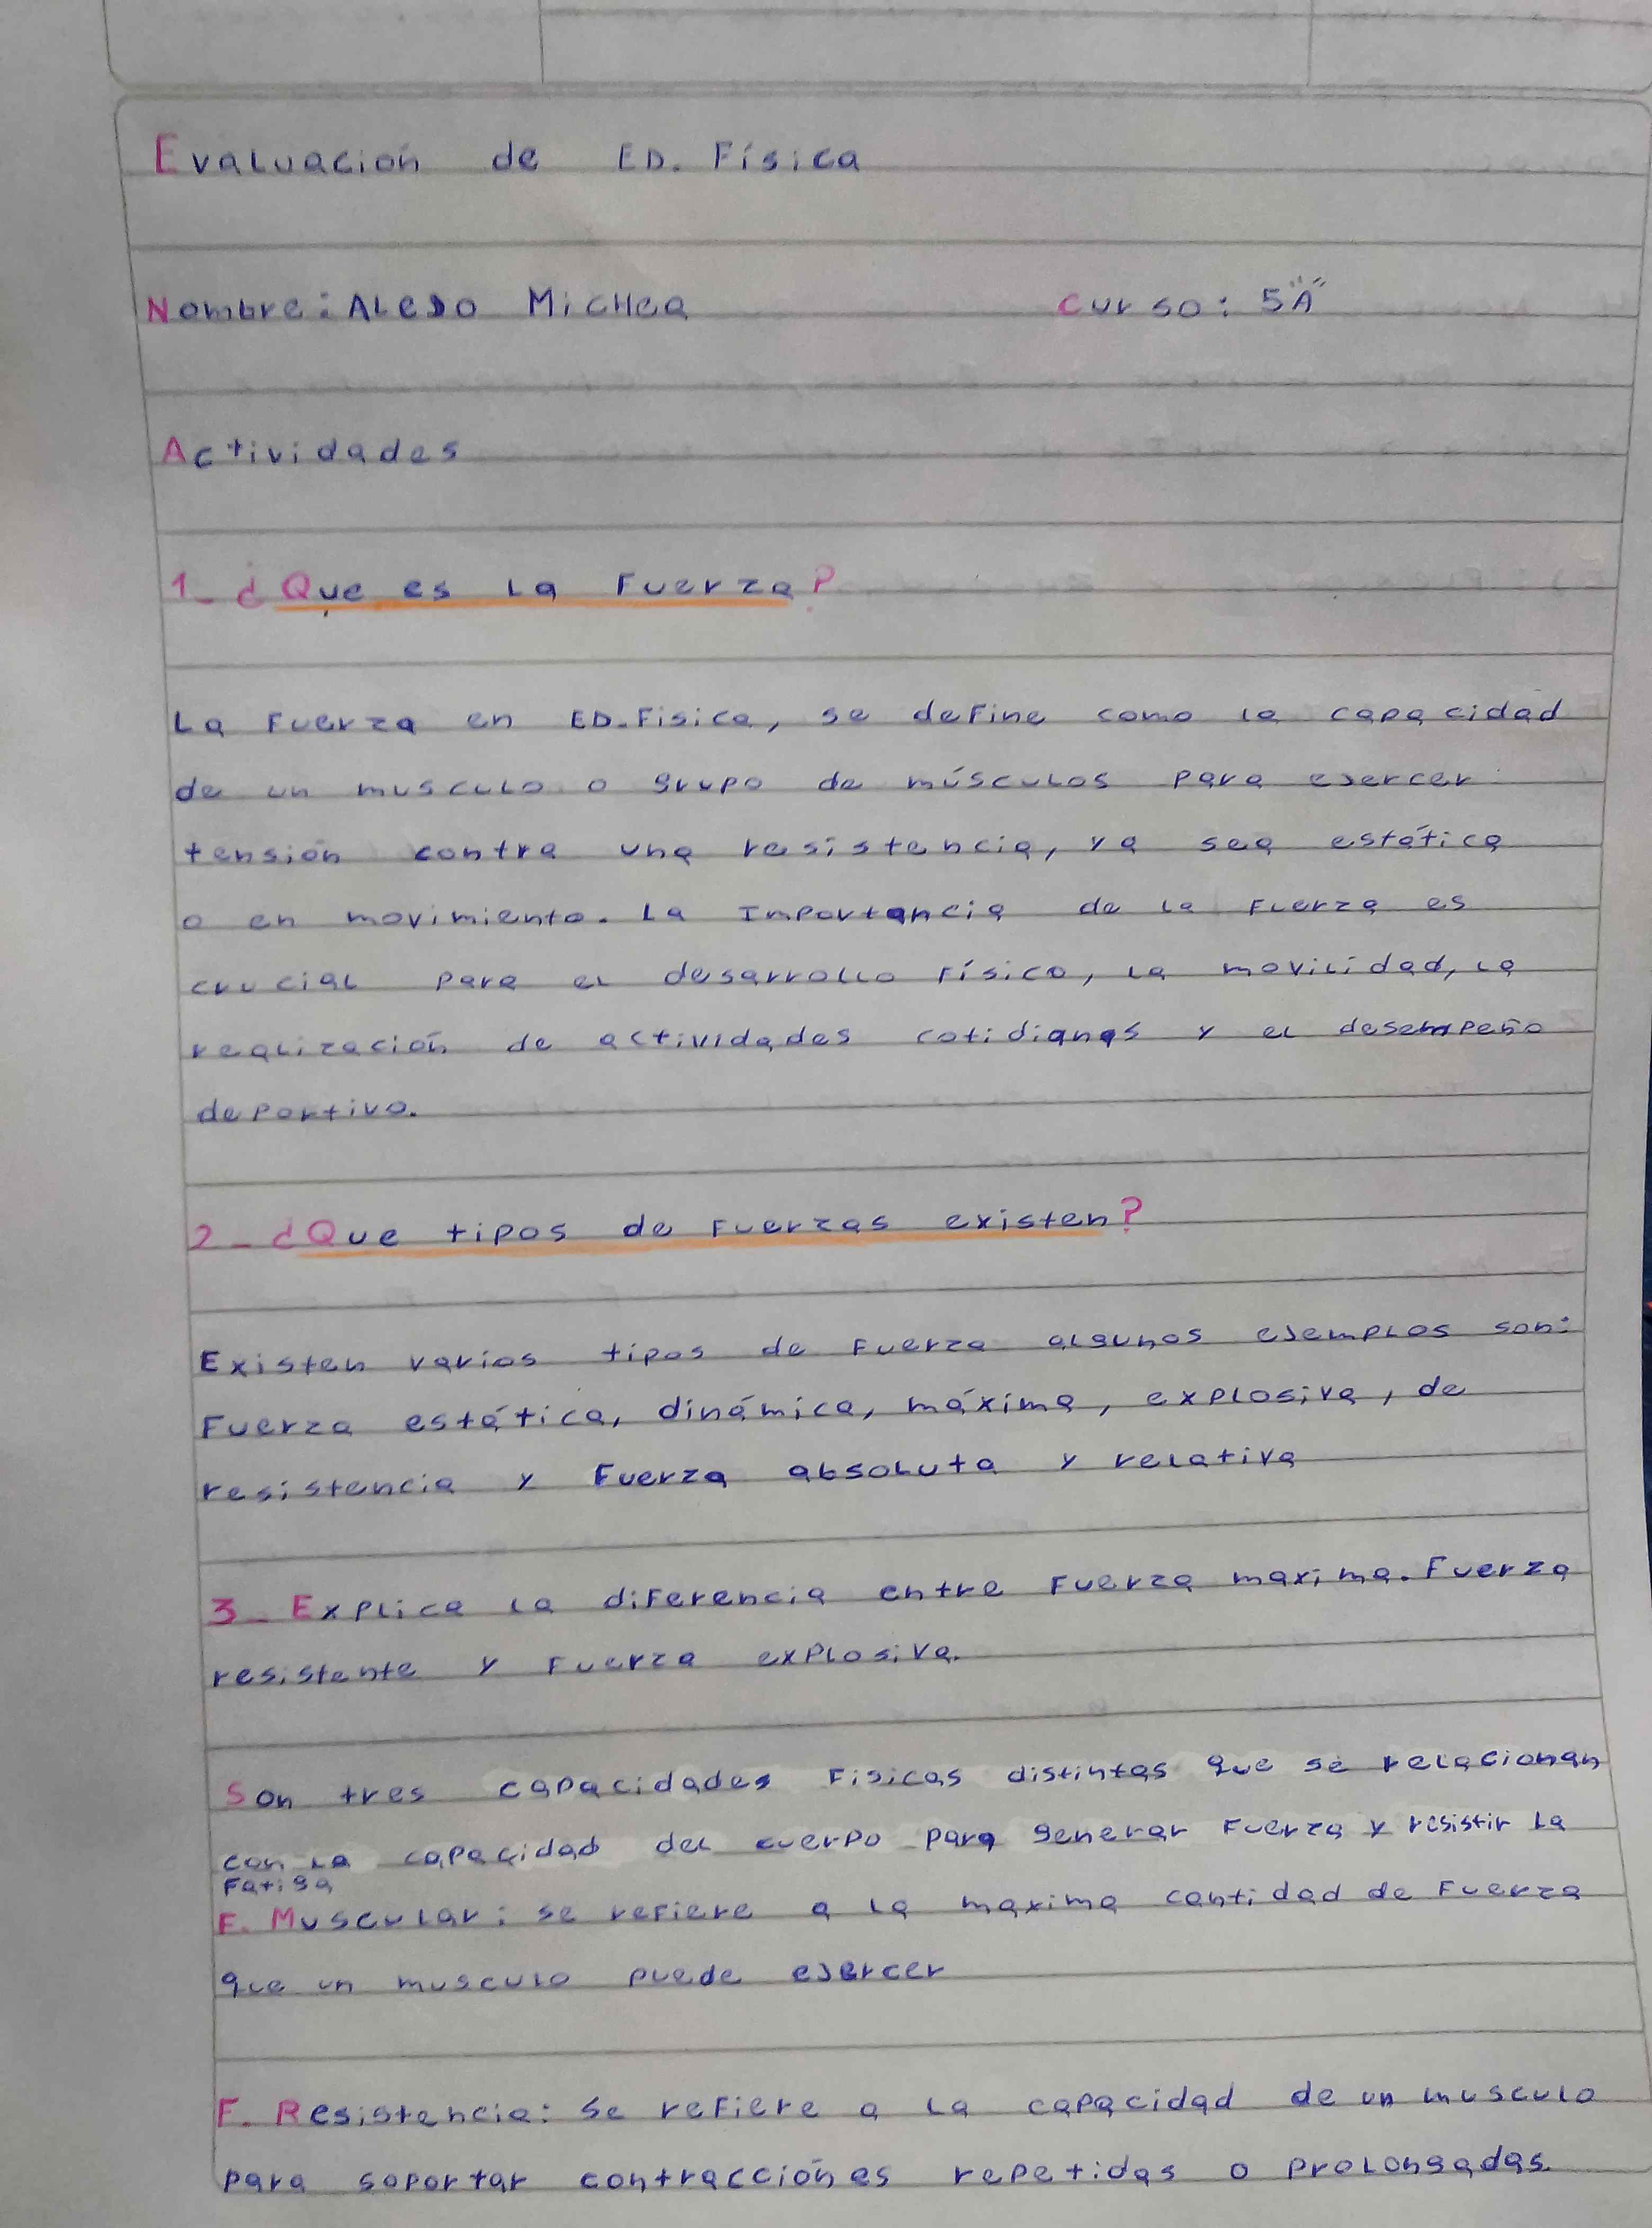 Evaluación de ED. Física
Nombre: Alejo Michea Curso: 5"A"
Actividades
1_ ¿Que es la Fuerza?
La Fuerza en ED.Fisica, se define como la capacidad
de un musculo o grupo de músculos para ejercer
tensión contra una resistencia, ya sea estática
o en movimiento. La Importancia de la Fuerza es
crucial para el desarrollo Físico, la movilidad, la
realización de actividades cotidianas y el desempeño
deportivo.
2_ ¿Que tipos de Fuerzas existen?
Existen varios tipos de Fuerza algunos ejemplos son:
Fuerza estática, dinámica, máxima, explosiva, de
resistencia y Fuerza absoluta y relativa
3_ Explica la diferencia entre Fuerza maxima. Fuerza
resistente y Fuerza explosiva.
Son tres capacidades Fisicas distintas que se relacionan
con la capacidad del cuerpo para generar Fuerza y resistir la
Fatiga
F. Muscular: se refiere a la maxima cantidad de Fuerza
que un musculo puede ejercer
F. Resistencia: Se refiere a la capacidad de un musculo
para soportar contracciónes repetidas o prolongadas.